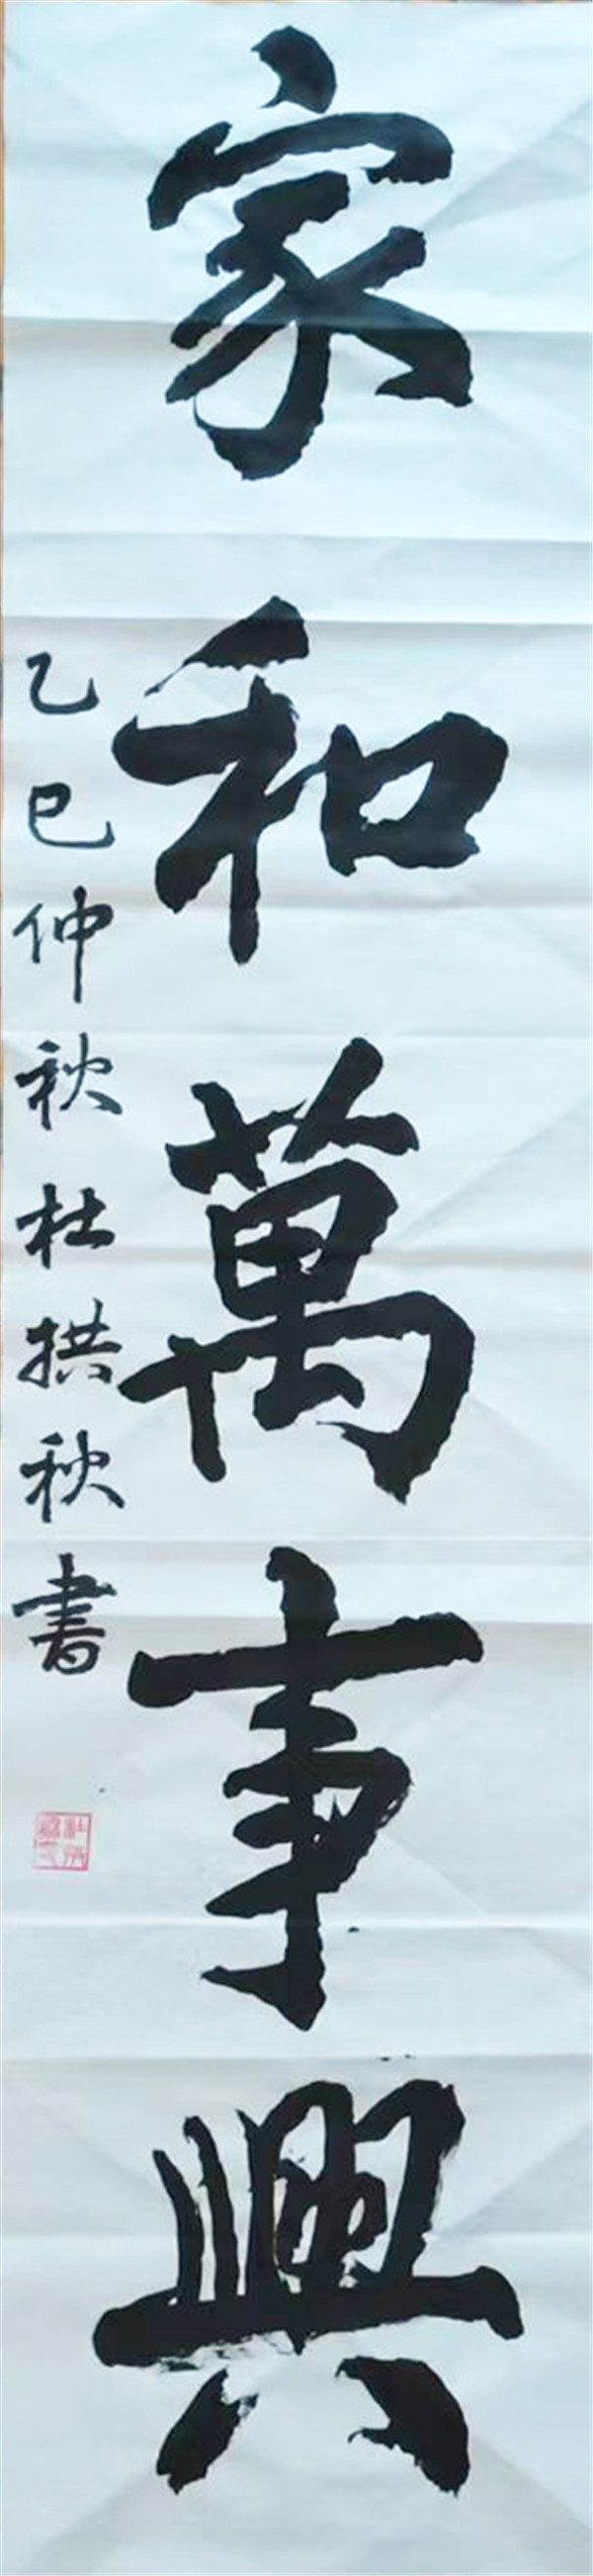 家和萬事興
乙巳仲秋杜拱秋書